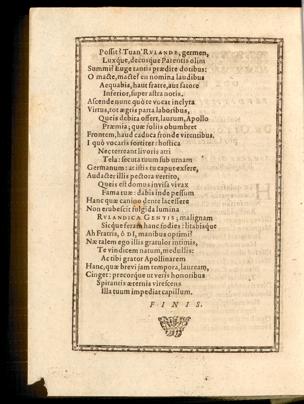 Possit? Tuan' RVLANDE, germen,
Luxque, decusque Parentis olim
Summi? Euge tantis prædite dotibus:
O macte, macte! en nomina laudibus
Æquabis, haut fratre, aut satore
Inferior, super astra notis.
Ascende nunc quò te vocat inclyta
Virtus, tot ægris parta laboribus,
Queis debita offert, laurum, Apollo
Præmia; quæ soliis obumbret
Frontem, haud caduca fronde virentibus.
I quò vocaris fortiter: hostica
Nec terreant livoris atri
Tela: secuta tuum sub urnam
Germanum: at isti tu caput exsere,
Audacter illi pectora territo,
Queis est domus invisa vivax
Fama tuæ: dabis inde pessum
Hanc quæ canino dente lacessere
Non erubescit fulgida lumina
RVLANDICÆ GENTIS; malignam
Sic que feram hanc fodies: litabisque
Ah Fratris, ô DI, manibus optimi?
Næ talem ego illis gratulor intimis,
Te vindicem natum, medullis:
Ac tibi grator Apollinarem
Hanc, quæ brevi jam tempora, lauream,
Cinget: precorque ut veris honoribus
Spirantis æternis virescens
Illa tuum impediat capillum.
FINIS.